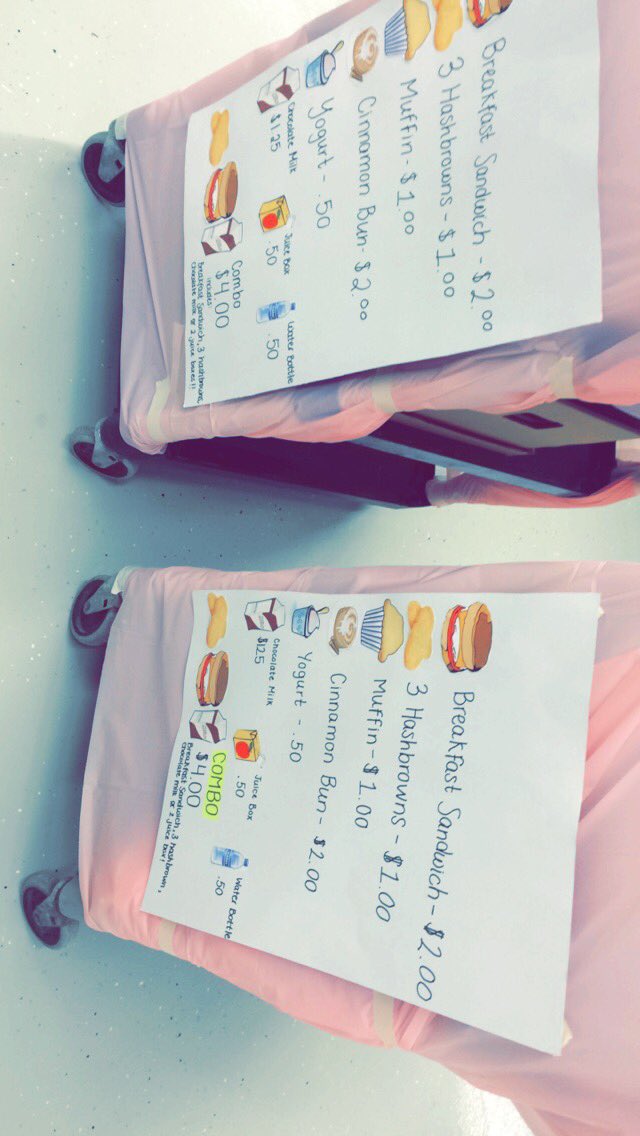 Breakfast Sandwich - $2.00
3 Hashbrowns - $1.00
Muffin - $1.00
Cinnamon Bun - $2.00
Yogurt - .50
Chocolate Milk
$1.25
Juice Box
.50
Water Bottle
.50
Combo
$4.00
includes
breakfast sandwich, 3 hashbrowns,
chocolate milk or 2 juice boxes!!
Breakfast Sandwich - $2.00
3 Hashbrowns - $1.00
Muffin - $1.00
Cinnamon Bun - $2.00
Yogurt - .50
Chocolate Milk
$1.25
Juice Box
.50
Water Bottle
.50
COMBO
$4.00
Breakfast Sandwich, 3 hashbrown,
chocolate milk or 2 juice box!